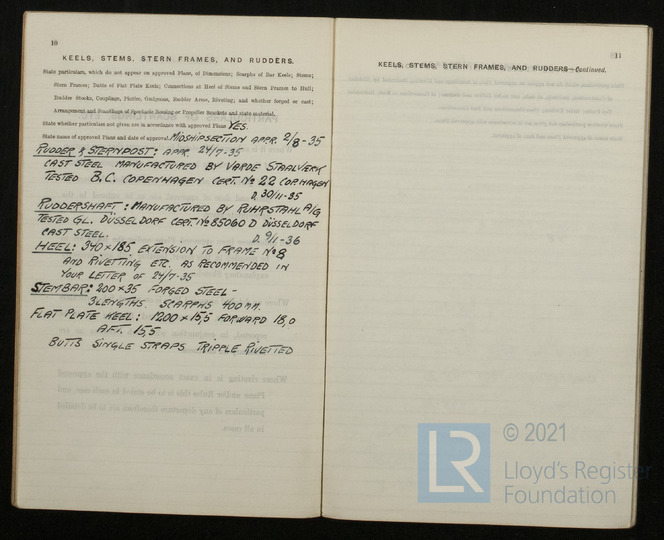 10
KEELS, STEMS, STERN FRAMES, AND RUDDERS.
State particulars, which do not appear on approved Plans, of Dimensions; Scarphs of Bar Keels; Stems;
Stern Frames; Butts of Flat Plate Keels; Connections at Heel of Stems and Stern Frames to Hull;
Rudder Stocks, Couplings, Pintles, Gudgeons, Rudder Arms, Riveting; and whether forged or cast;
Arrangement and Scantlings of Spectacle Bossing or Propeller Brackets and state material.
State whether particulars not given are in accordance with approved Plans YES.
State name of approved Plans and date of approval MIDSHIPSECTION APPR. 2/8-35
RUDDER & STERNPOST: APPR. 24/7-35
CAST STEEL MANUFACTURED BY VARDE STAALVERK
TESTED B.C. COPENHAGEN CERT. No 22 COPENHAGEN
D. 30/11-35
RUDDERSHAFT: MANUFACTURED BY RUHRSTAHL A/G
TESTED GL. DÜSSELDORF CERT. No 85060 D DÜSSELDORF
CAST STEEL. D. 9/11-36
HEEL: 340 x 185 EXTENSION TO FRAME No 8
AND RIVETTING ETC. AS RECOMMENDED IN
YOUR LETTER OF 24/7-35
STEMBAR: 200 x 35 FORGED STEEL -
3 LENGTHS. SCARPHS 400 MM.
FLAT PLATE KEEL: 1200 x 15,5 FORWARD 18,0
AFT. 15,5
BUTTS SINGLE STRAPS TRIPPLE RIVETTED
11
KEELS, STEMS, STERN FRAMES, AND RUDDERS—Continued.
LR
© 2021
Lloyd's Register
Foundation